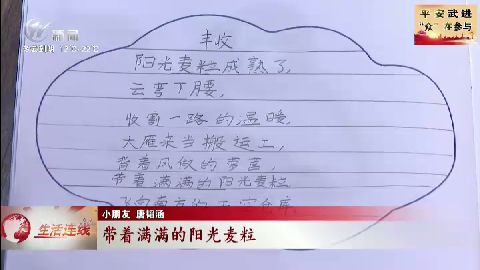 新闻
平安武进
“众”在参与
丰收
阳光麦粒成熟了,
云弯下腰,
收割一路的温暖,
大雁来当搬运工,
背着风做的
带着满满的阳光麦粒
生活连线
小朋友 唐韬涵
带着满满的阳光麦粒